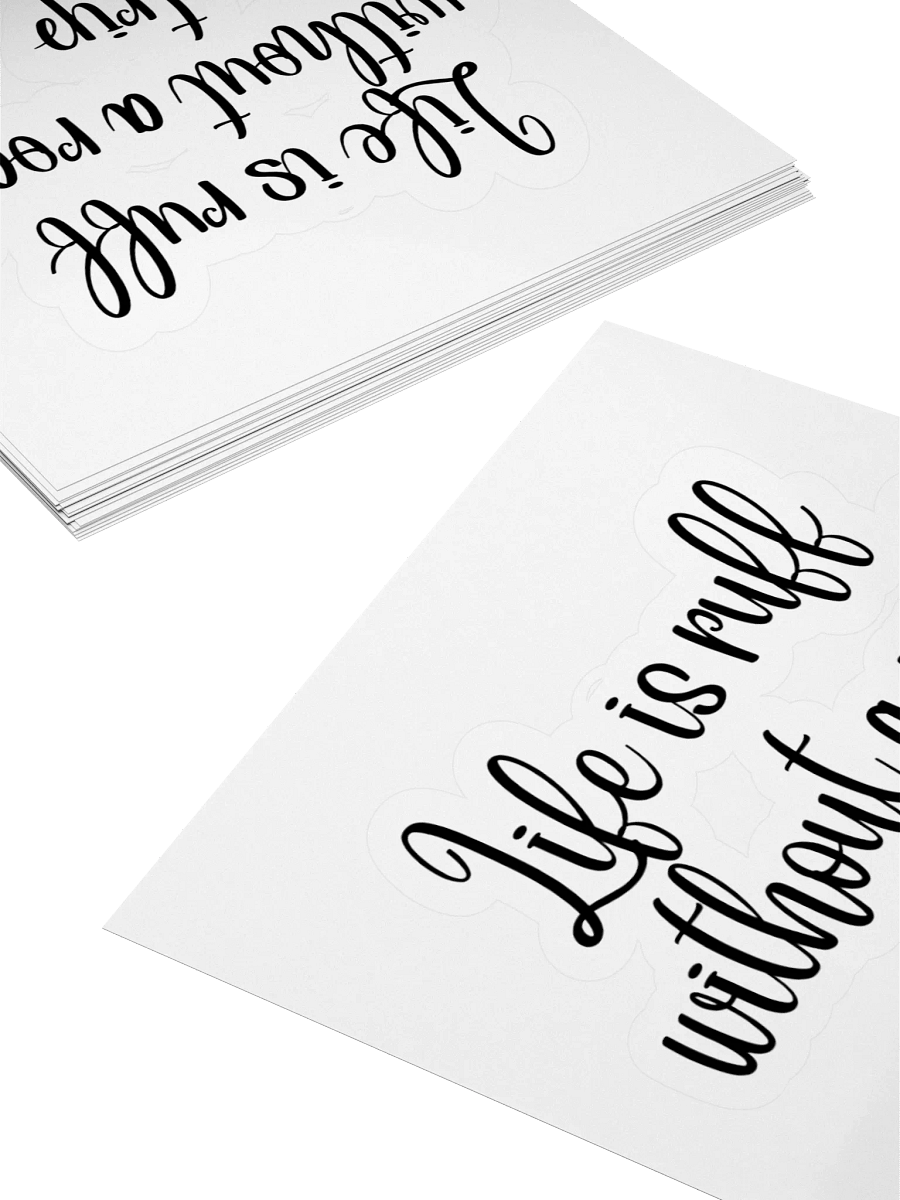 Life is ruff
without a roa
trip
Life is ruff
without a